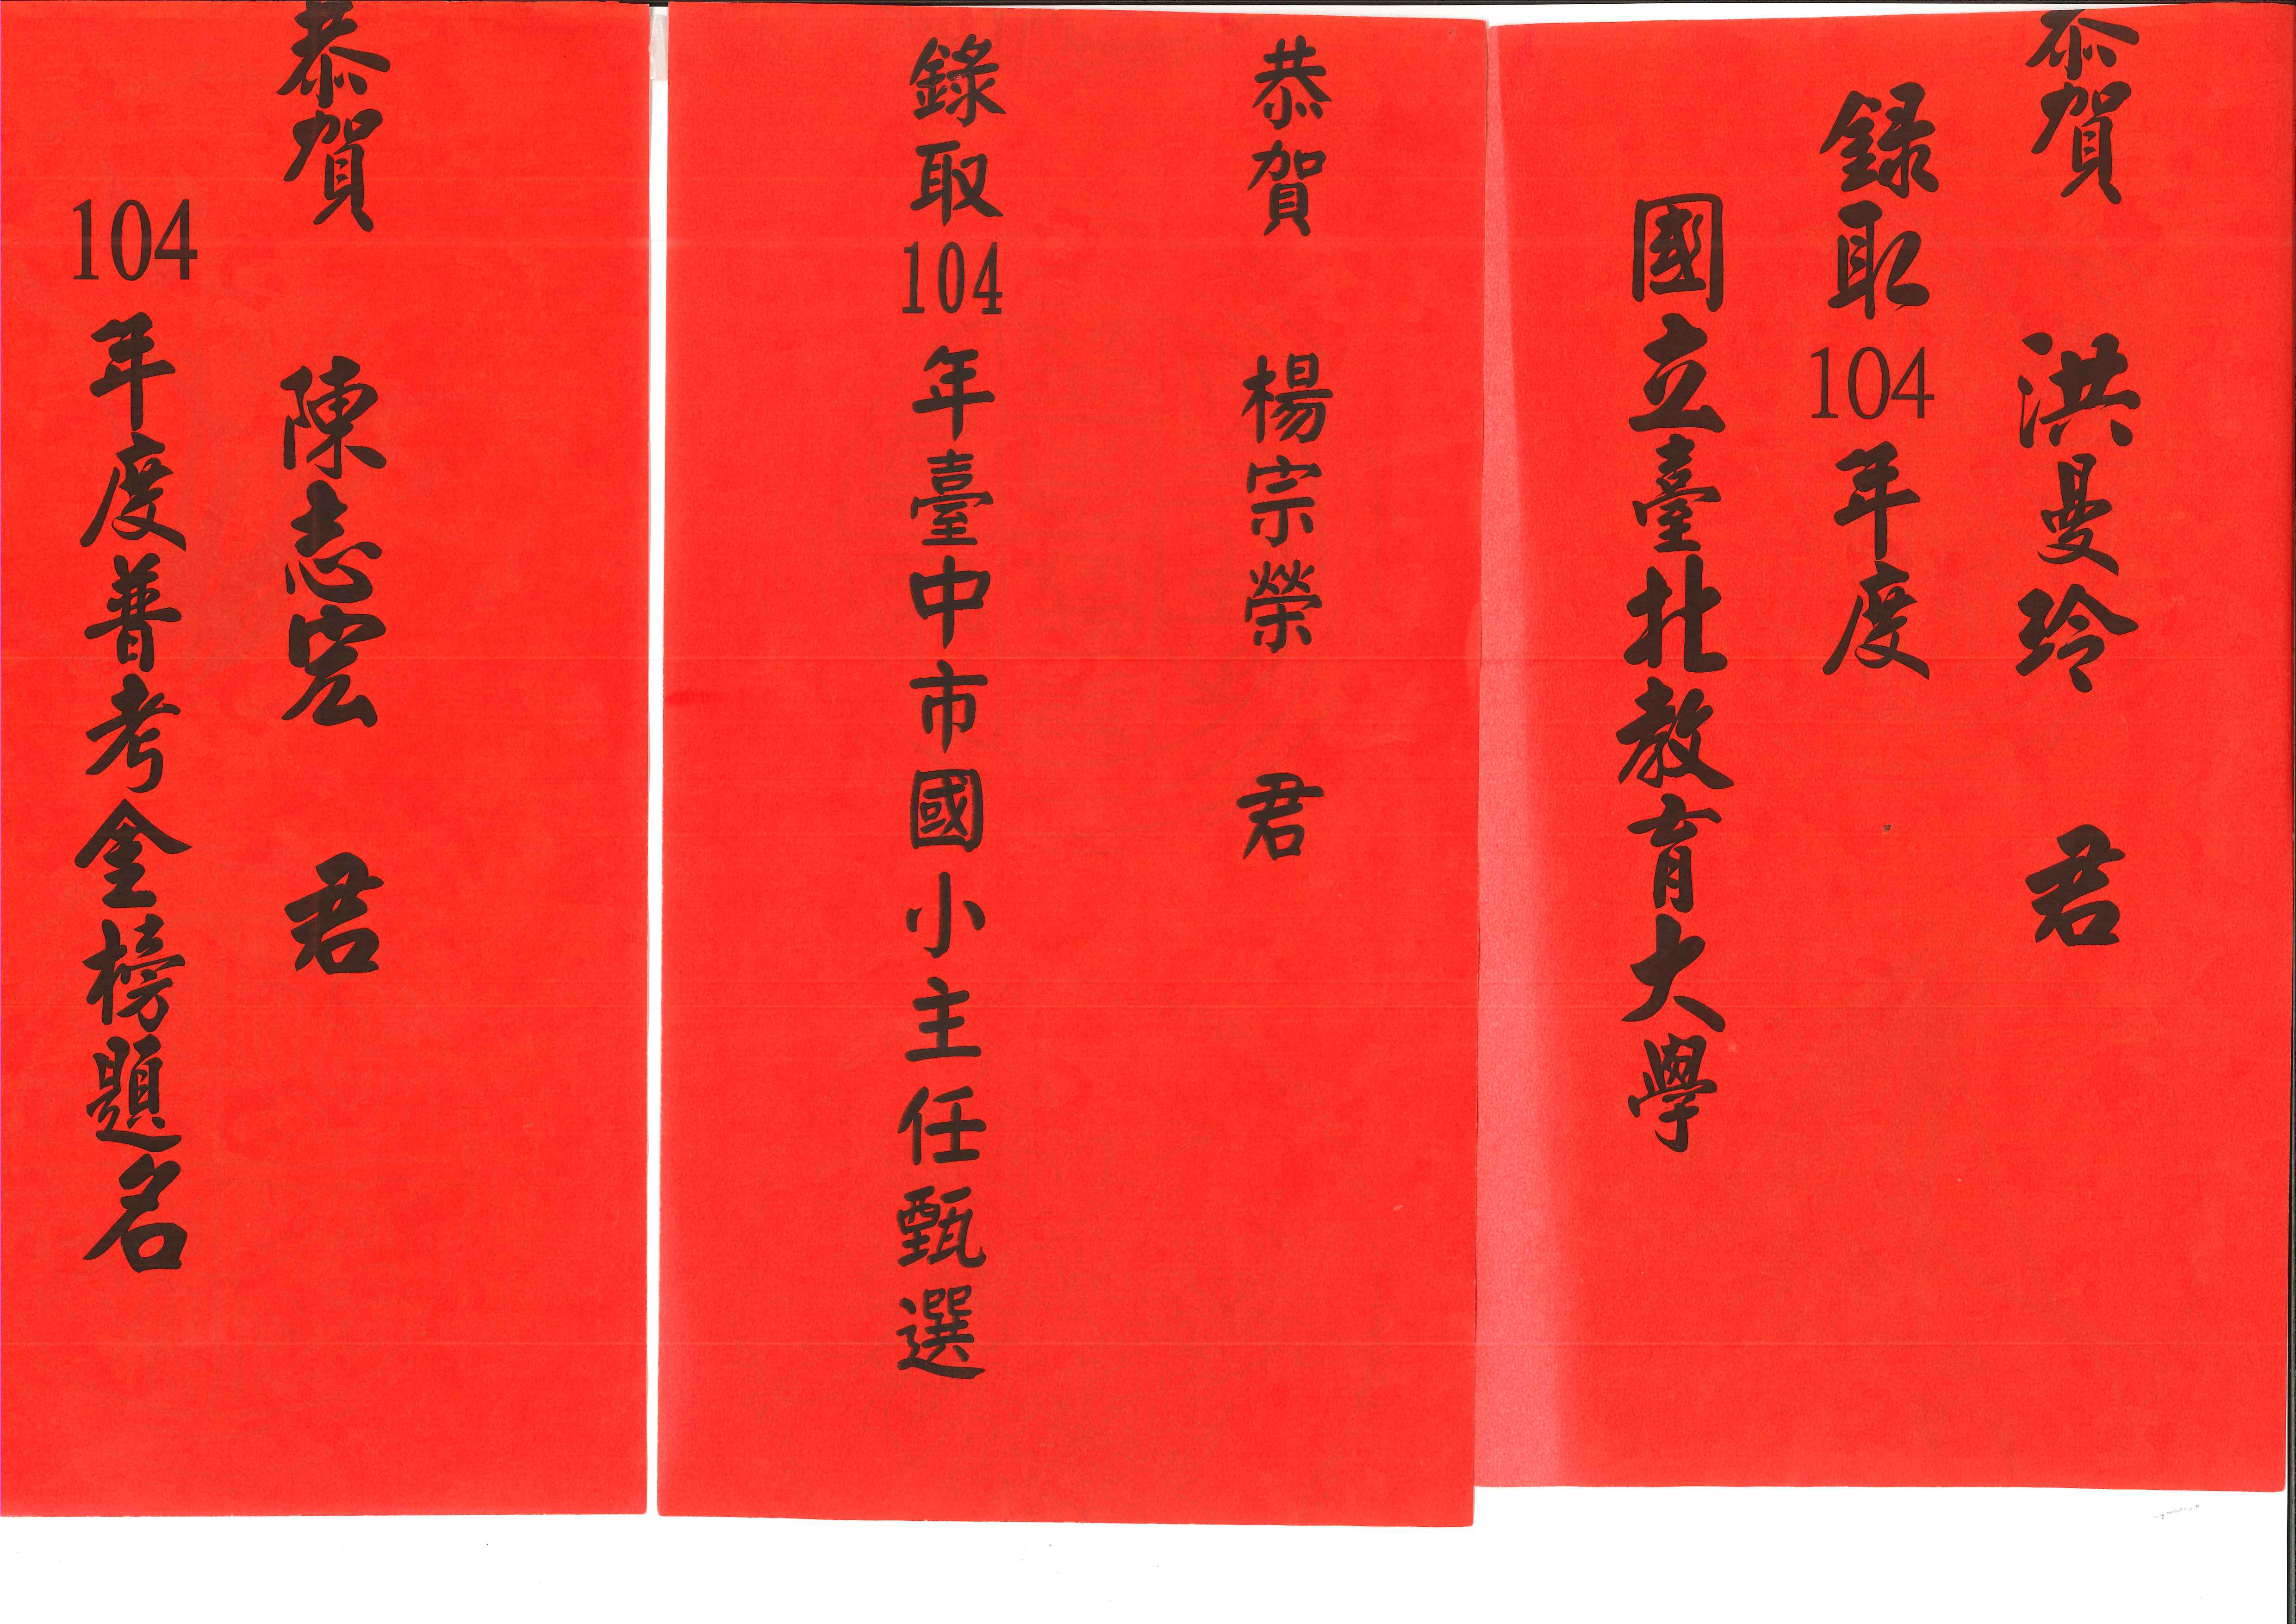 恭賀 洪曼玲 君
錄取104年度
國立臺北教育大學
恭賀 楊宗榮 君
錄取104年臺中市國小主任甄選
恭賀 陳志宏 君
104年度普考金榜題名